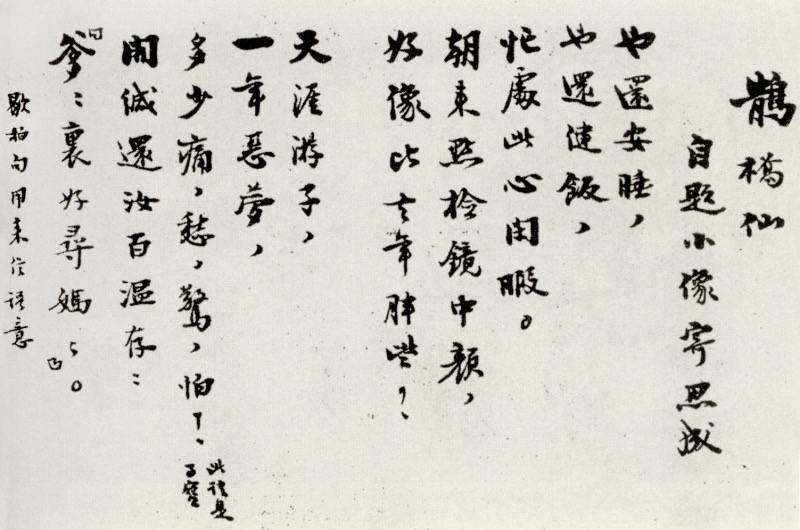 鵲橋仙
自題小像寄思成
也還安睡，
也還健飯，
忙處此心閑暇。
朝來點檢鏡中顏，
好像比去年胖些？
天涯游子，
一年惡夢，
多少痛，愁，驚，怕！
開緘還汝百溫存：
「爹爹裏好尋媽媽」。
歇拍句用來信語意